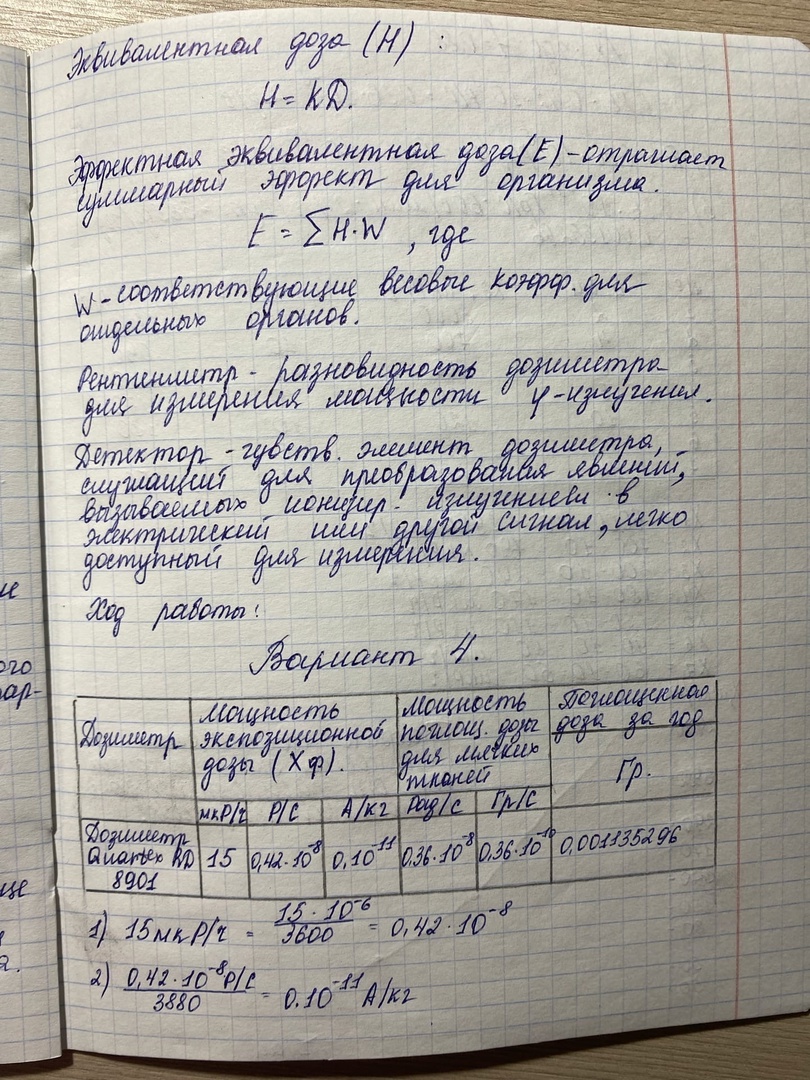 Эквивалентная доза (H) :
H = KD.
Эффектная эквивалентная доза (E) - отражает
суммарный эффект для организма.
E = ∑ H·W , где
W - соответствующие весовые коэфф. для
отдельных органов.
Рентгенметр - разновидность дозиметра
для измерения мощности γ-излучения.
Детектор - чувств. элемент дозиметра,
служащий для преобразования явлений,
вызываемых ионизир. излучением в
электрический или другой сигнал, легко
доступный для измерения.
Ход работы:
Вариант 4.
Дозиметр
Мощность
экспозиционной
дозы (Xф).
Мощность
поглощ. дозы
для мягких
тканей
Поглощенная
доза за год
Гр.
мкР/ч Р/С А/кг Рад/с Гр/С
Дозиметр
Quartex RD
8901
15 0,42·10⁻⁸ 0,10⁻¹¹ 0,36·10⁻⁸ 0,36·10⁻¹⁰ 0,001135296
1) 15 мкР/ч = 15·10⁻⁶ / 3600 = 0,42·10⁻⁸
2) 0,42·10⁻⁸ Р/С / 3880 = 0.10⁻¹¹ А/кг
ого
ар-